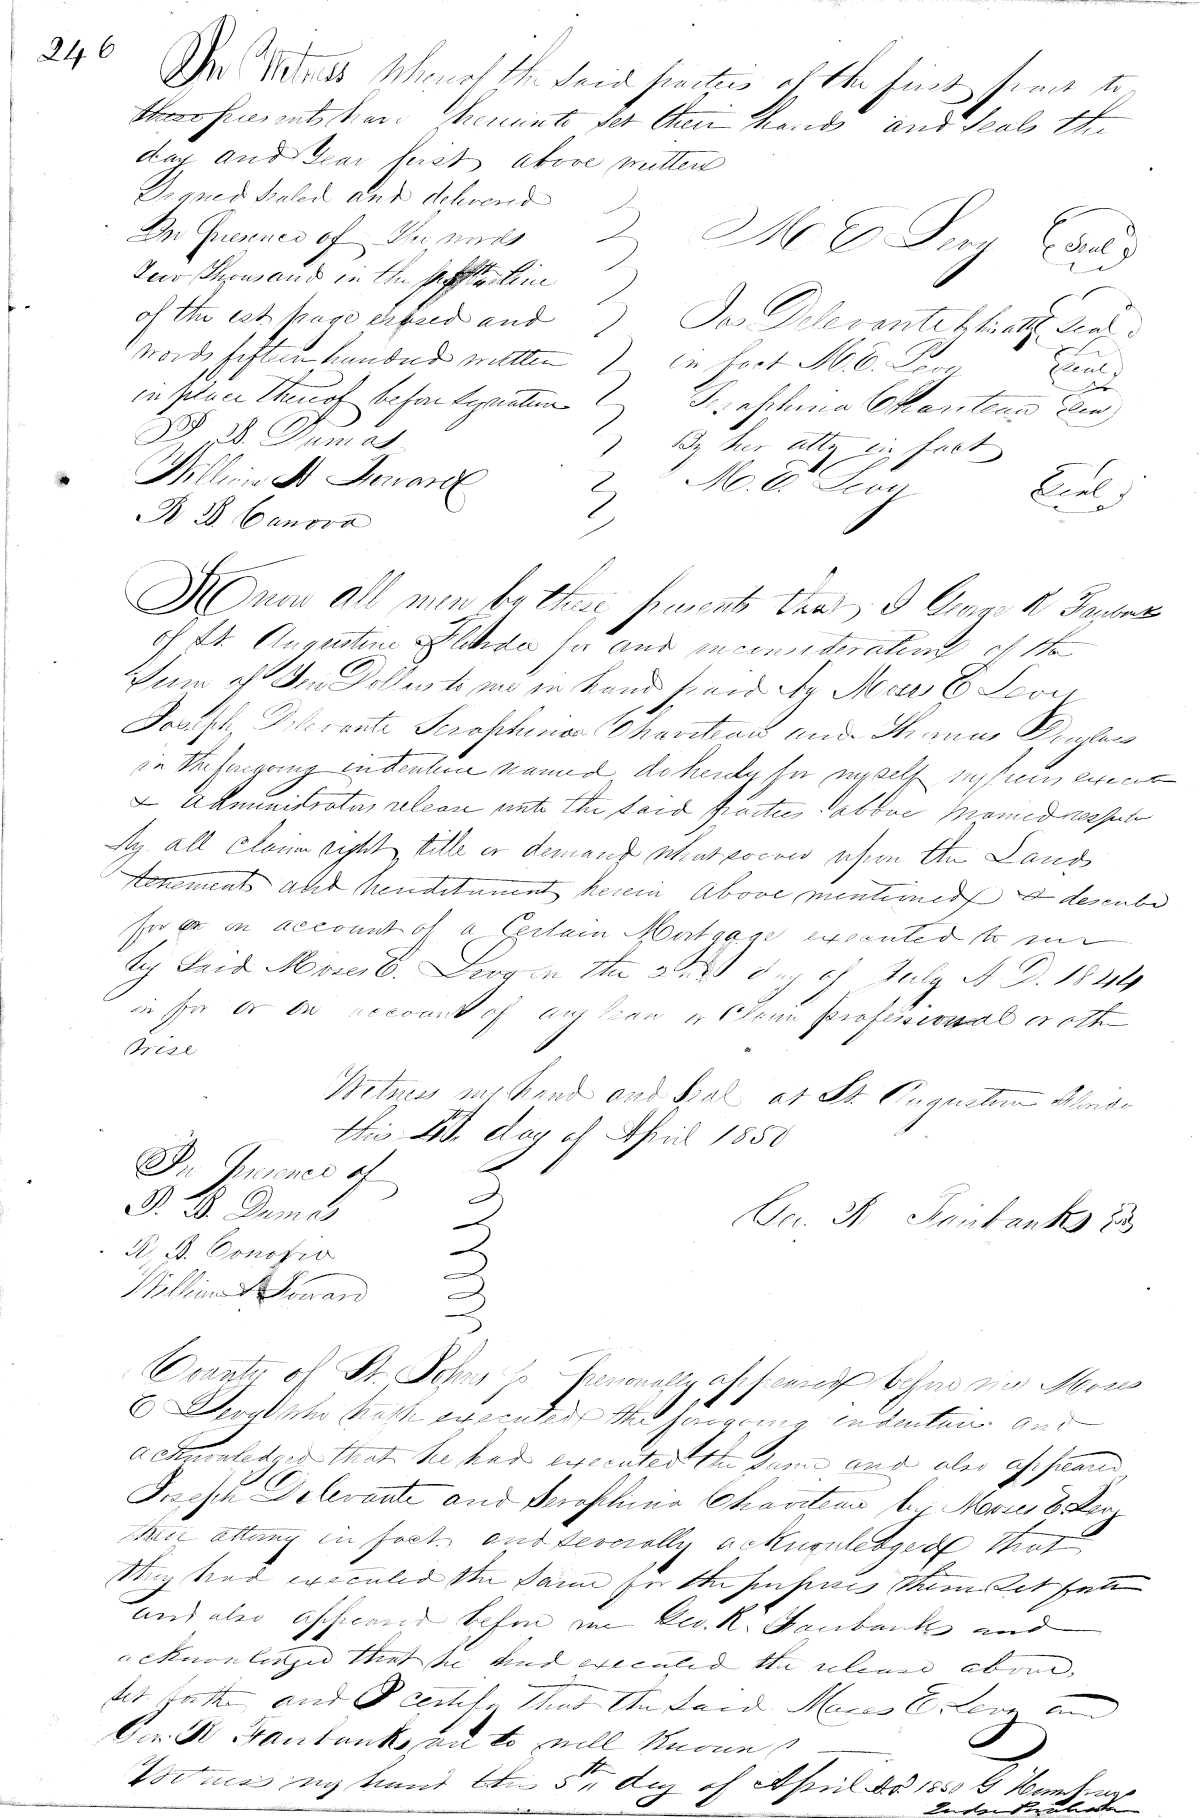 246
In Witness Whereof the Said parties of the first part to
these presents have hereunto Set their hands and Seals the
day and Year first above written
Signed Sealed and delivered
In Presence of The words
two Thousand in the line
of the 1st page erased and
words fifteen hundred written
in place thereof before Signature
P. B. Dumas
William A Forward
R B Canova
M E Levy Seal
Jos Delevante by his atty Seal
in fact M. E. Levy Seal
Seraphina Chaviteau Seal
By her atty in fact
M. E. Levy Seal
Know all men by these presents that I George R Fairbanks
of St. Augustine Florida for and in consideration of the
Sum of Ten Dollars to me in hand paid by Moses E Levy
Joseph Delevante Seraphina Chaviteau and Thomas Douglass
in the foregoing indenture named do hereby for myself my heirs execut
& Administrators release unto the Said parties above named respective
ly all claim right title or demand whatsoever upon the Lands
tenements and hereditament herein above mentioned & describe
for or on account of a Certain Mortgage executed to me
by Said Moses E. Levy on the 2nd day of July A D. 1844
in for or on account of any lean or Claim professional or oth
wise
Witness my hand and Seal at St. Augustine Florida
this 4th day of April 1850
In Presence of
P. B. Dumas
R. B. Canova
William A Forward
Geo. R Fairbanks
County of St. Johns Personally appeared before me Moses
E Levy who hath executed the foregoing indenture and
acknowledged that he had executed the Same and also appeared
Joseph Delevante and Seraphina Chaviteau by Moses E. Levy
their attorney in fact and Severally acknowledged that
they had executed the Same for the purposes therein Set forth
and also appeared before me Geo. R. Fairbanks and
acknowledged that he had executed the release above
Set forth and I certify that the Said Moses E. Levy and
Geo. R Fairbanks are to well Known
Witness my hand this 5th day of April AD 1850 G Humphreys
Judge Probate